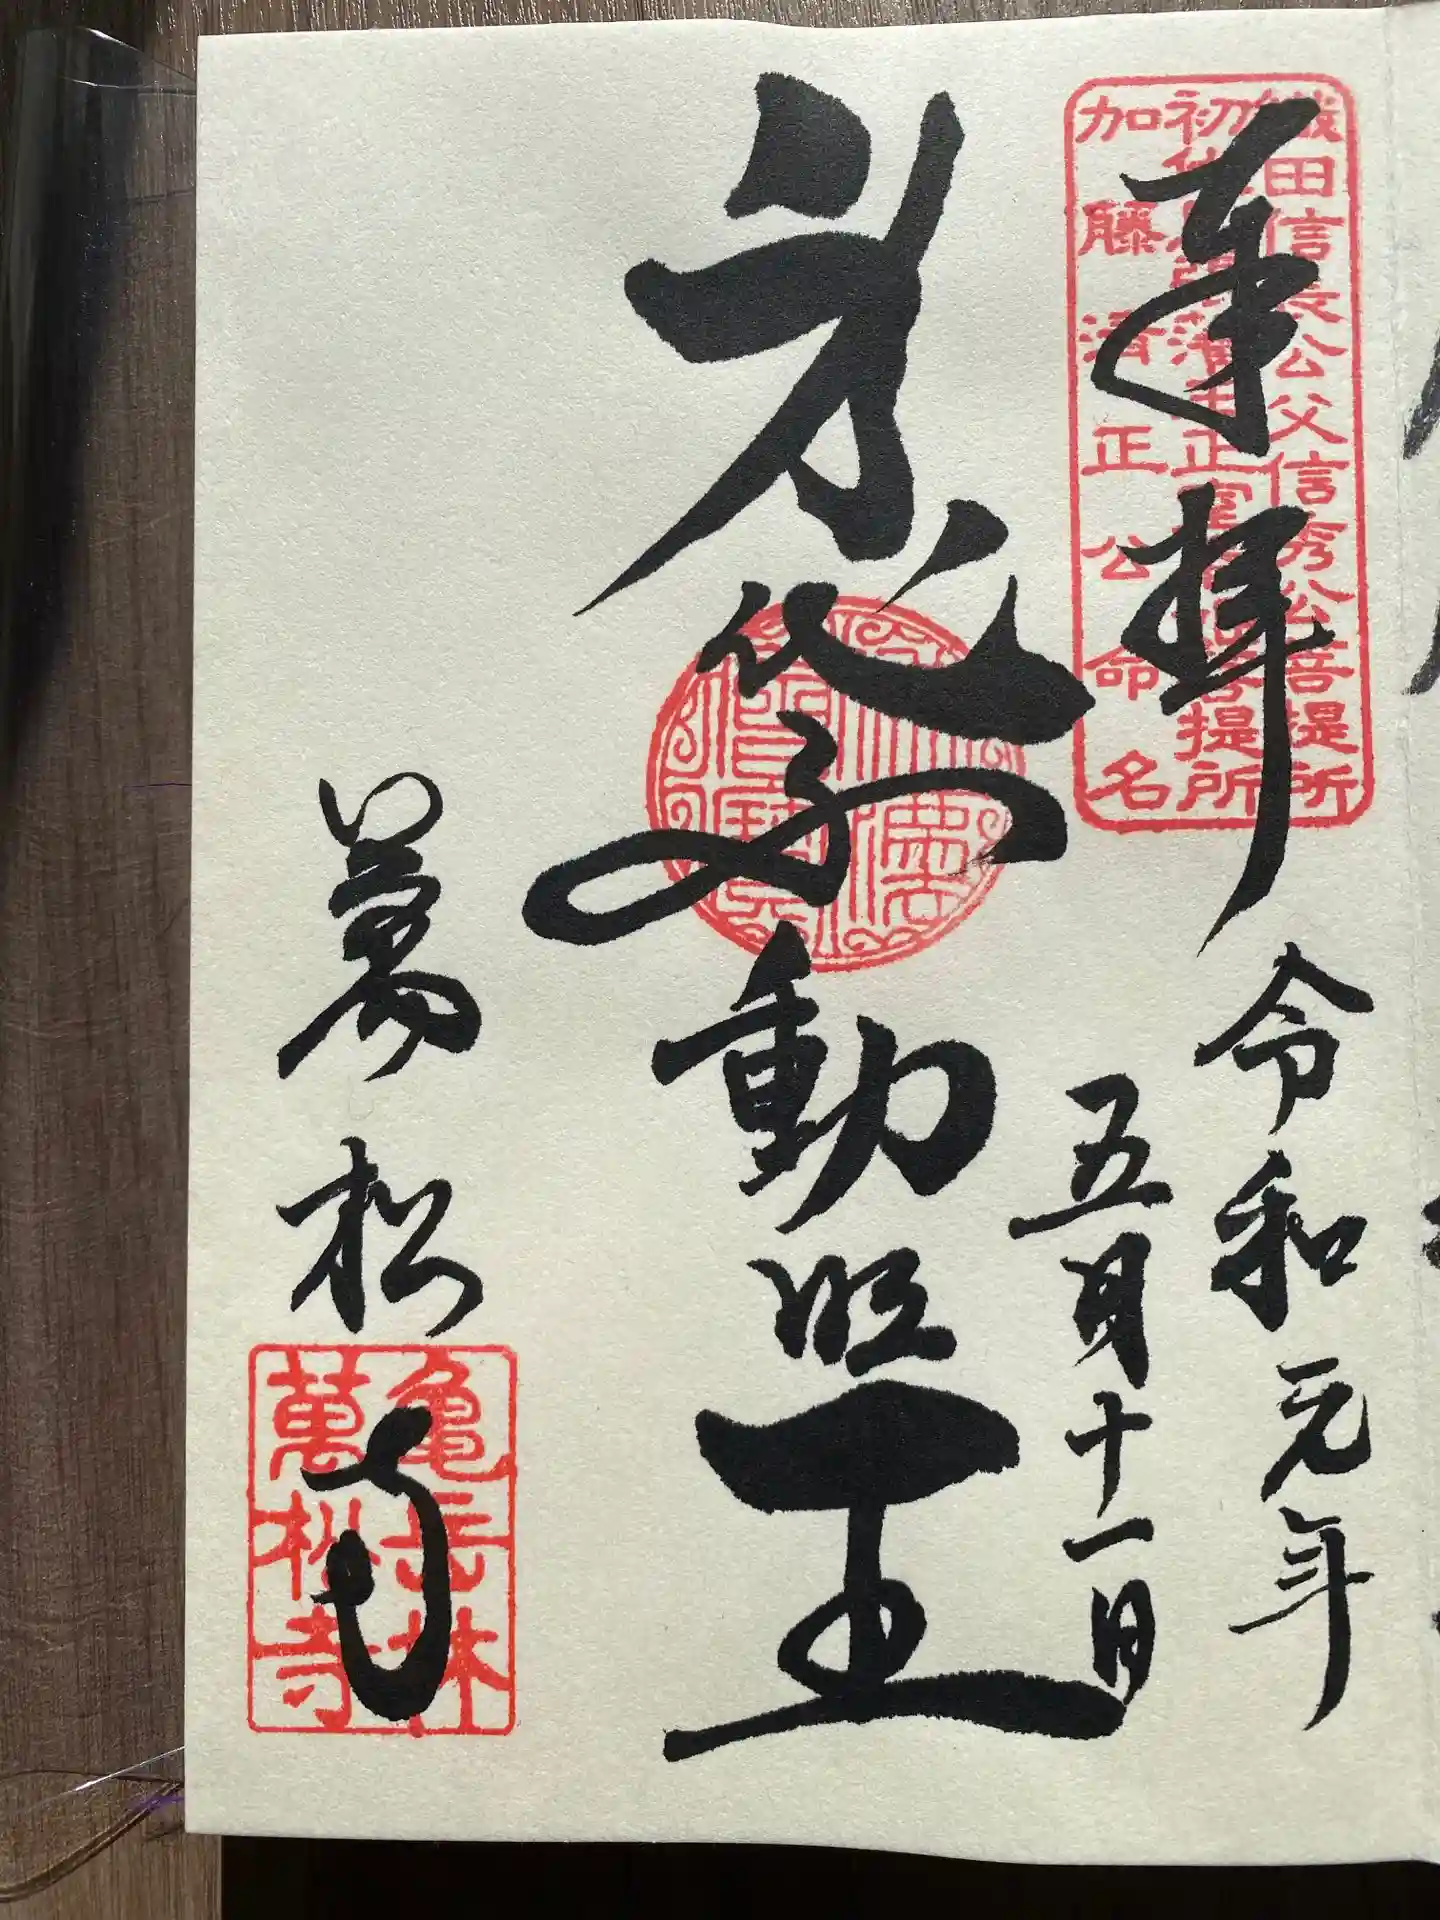 奉拝
織田信長公父信秀公菩提所
初代尾張藩主正室春姫菩提所
加藤清正公命名
令和元年
五月十一日
身代不動明王
萬松寺
亀岳林
萬松寺